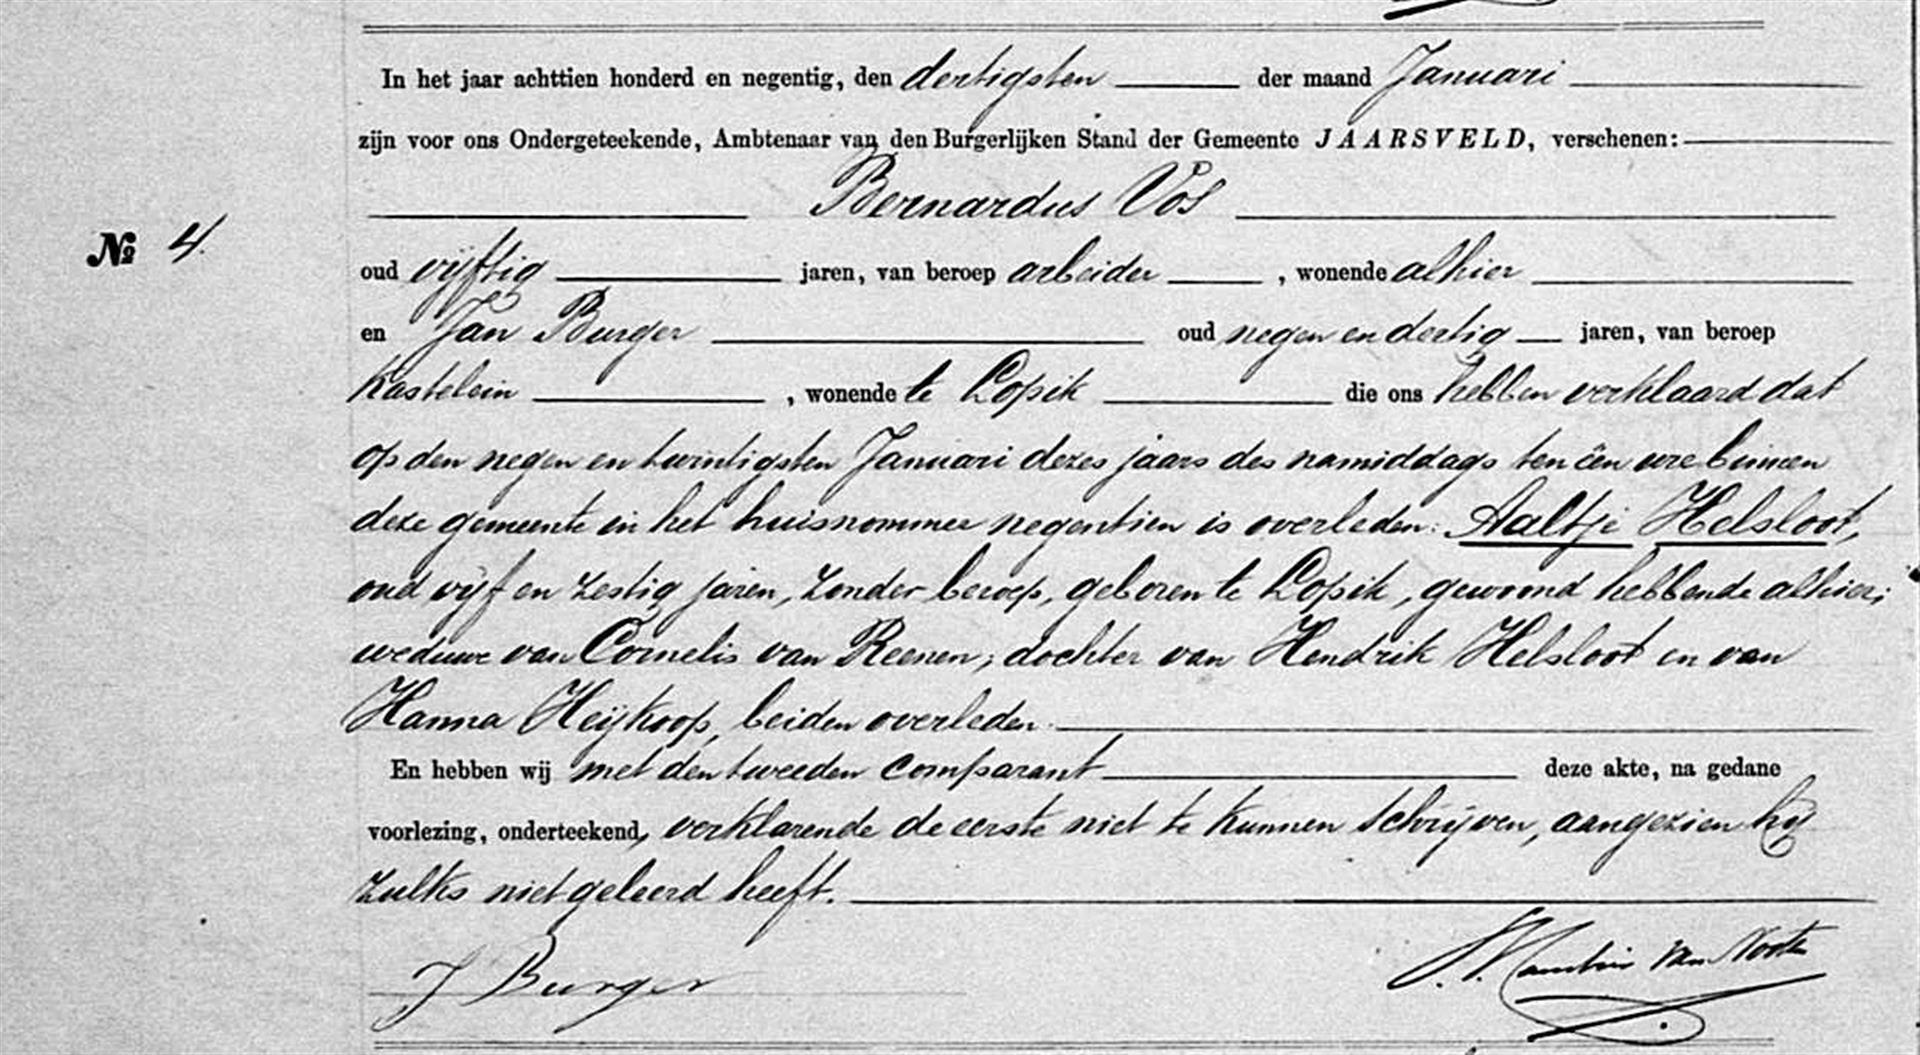 In het jaar achttien honderd en negentig, den dertigsten der maand Januari
zijn voor ons Ondergeteekende, Ambtenaar van den Burgerlijken Stand der Gemeente JAARSVELD, verschenen:
Bernardus Vos
No 4.
oud vijftig jaren, van beroep arbeider, wonende alhier
en Jan Burger oud negen en dertig jaren, van beroep
Kastelein, wonende te Lopik die ons hebben verklaard dat
op den negen en twintigsten Januari dezes jaars des namiddags ten één ure binnen
deze gemeente in het huisnommer negentien is overleden: Aaltje Helsloot,
oud vijf en zestig jaren, zonder beroep, geboren te Lopik, gewoond hebbende alhier;
weduwe van Cornelis van Reenen; dochter van Hendrik Helsloot en van
Hanna Heijkoop, beiden overleden.
En hebben wij met den tweeden comparant deze akte, na gedane
voorlezing, onderteekend, verklarende de eerste niet te kunnen schrijven, aangezien hij
zulks niet geleerd heeft.
J Burger
van